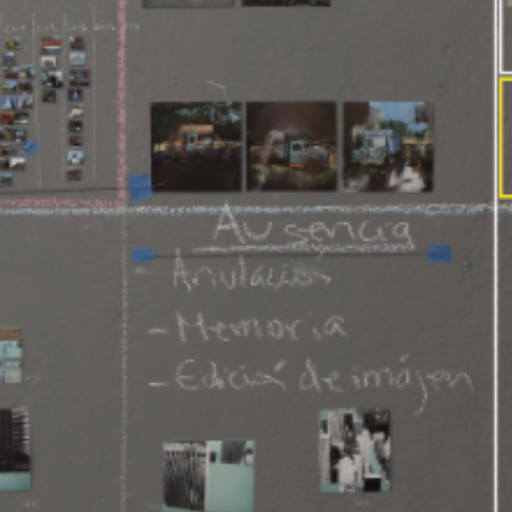 Ausencia
- Anulación
- Memoria
- Edición de imágen